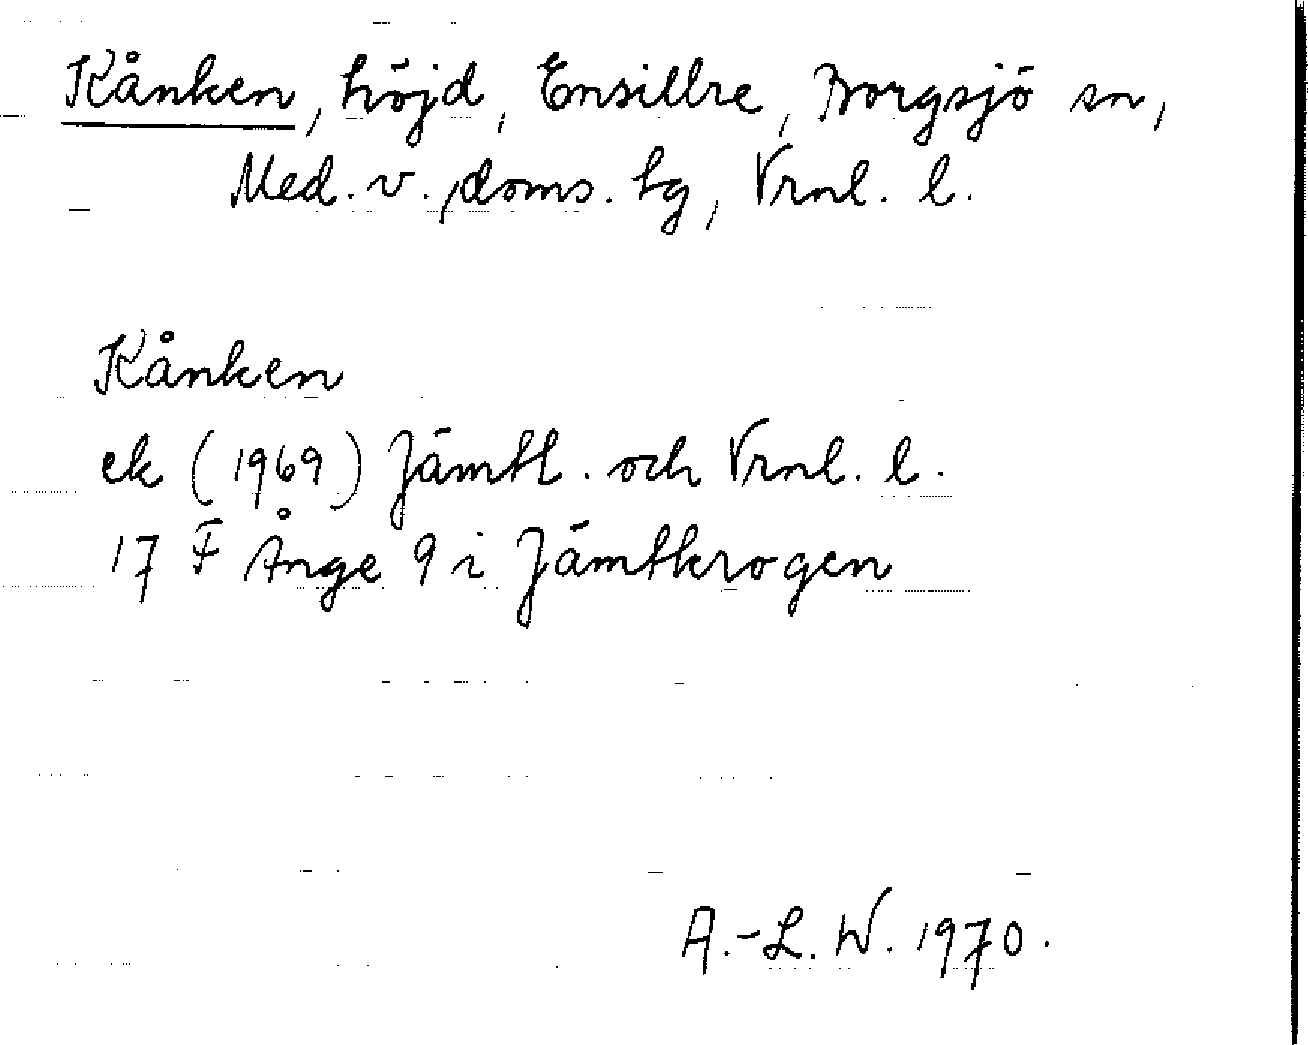 Kånken, höjd, Ensillre, Borgsjö sn,
Med. v., doms. hg, Vrnl. l.
Kånken
ek (1969) Jämtl. och Vrnl. l.
17 F Ånge 9 i Jämtkrogen
A.-L. W. 1970.